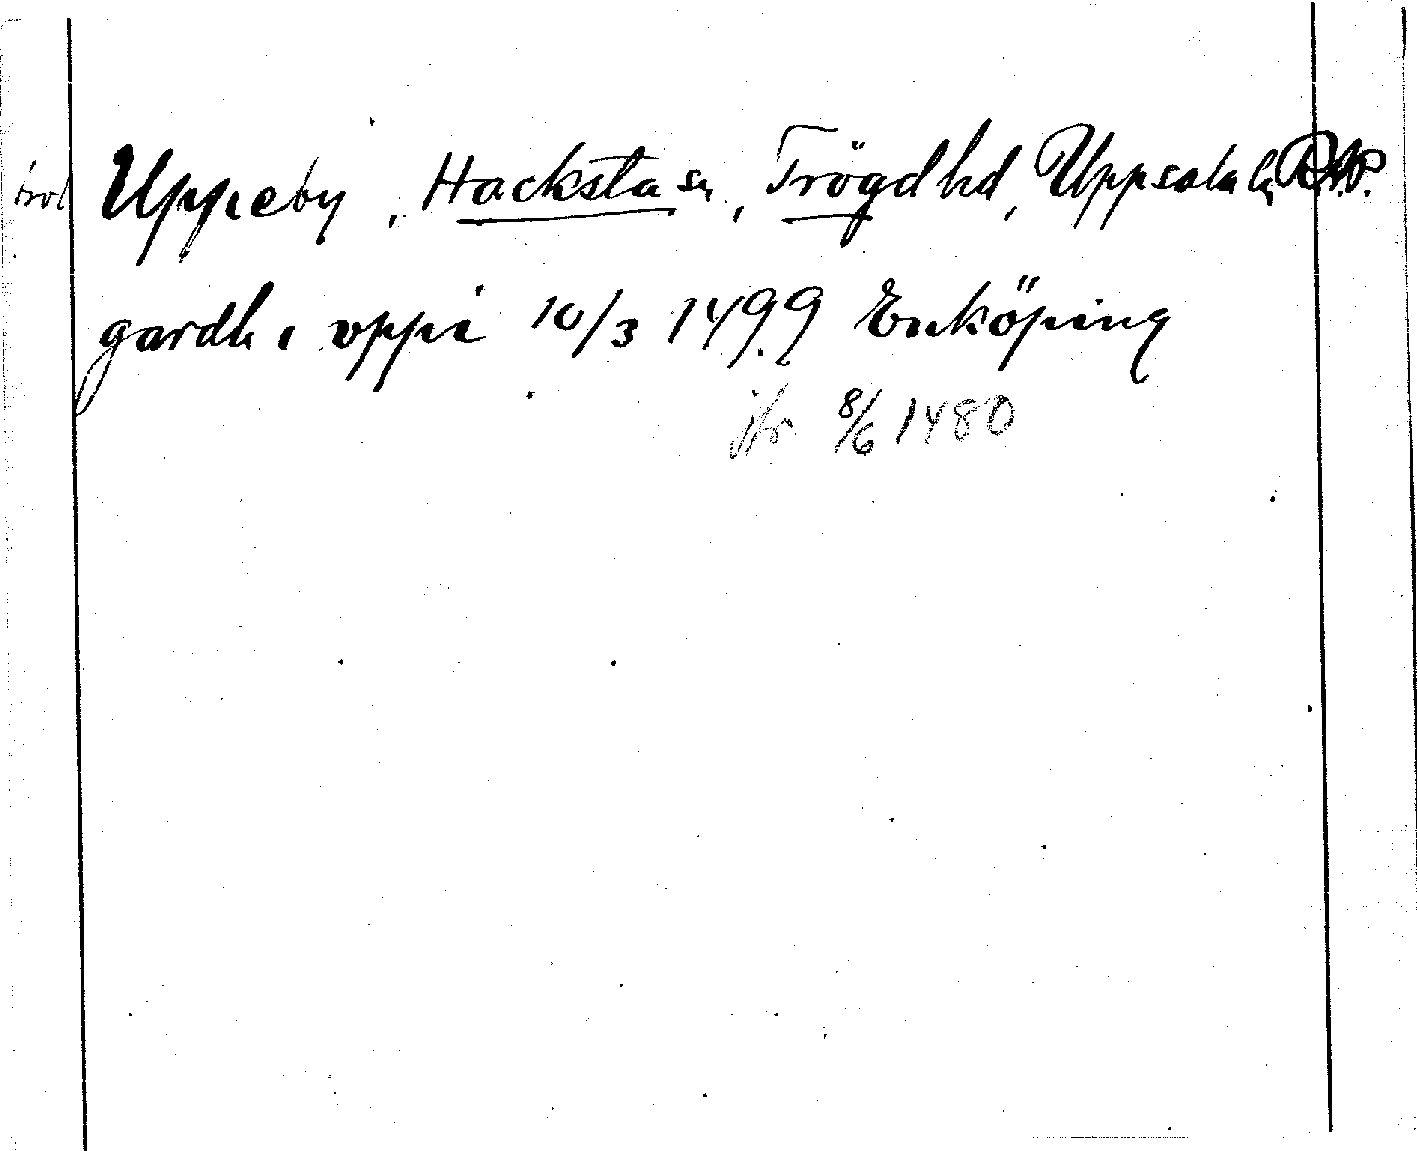 trol Uppeby, Hacksta sn, Trögd hd, Uppsala l. RAP.
gardh i vppi 10/3 1499 Enköping
jfr 8/6 1480